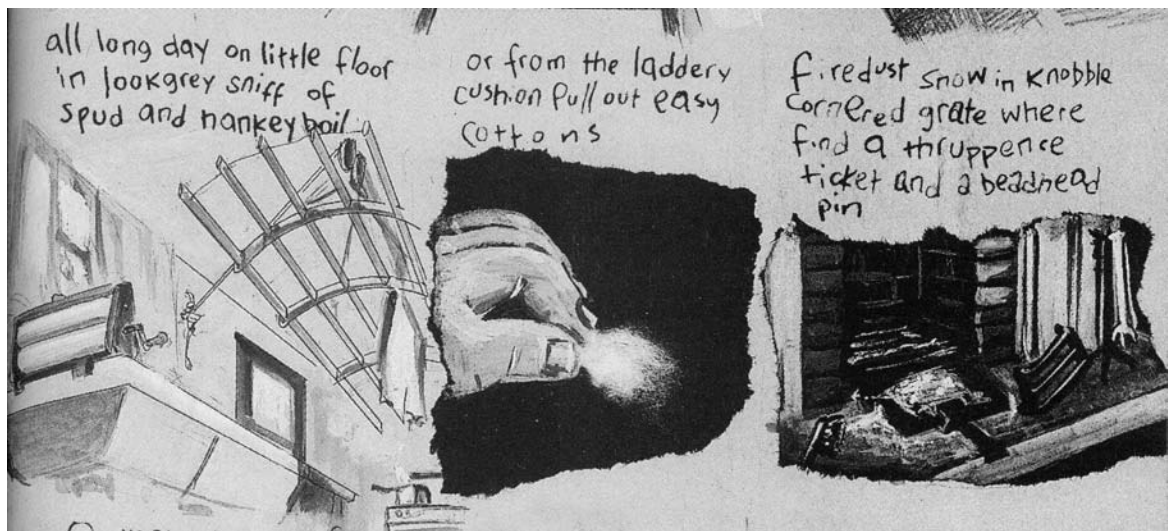 all long day on little floor
in lookgrey sniff of
spud and hankey boil
or from the laddery
cushion pull out easy
cottons
firedust snow in knobble
cornered grate where
find a thruppence
ticket and a beadhead
pin